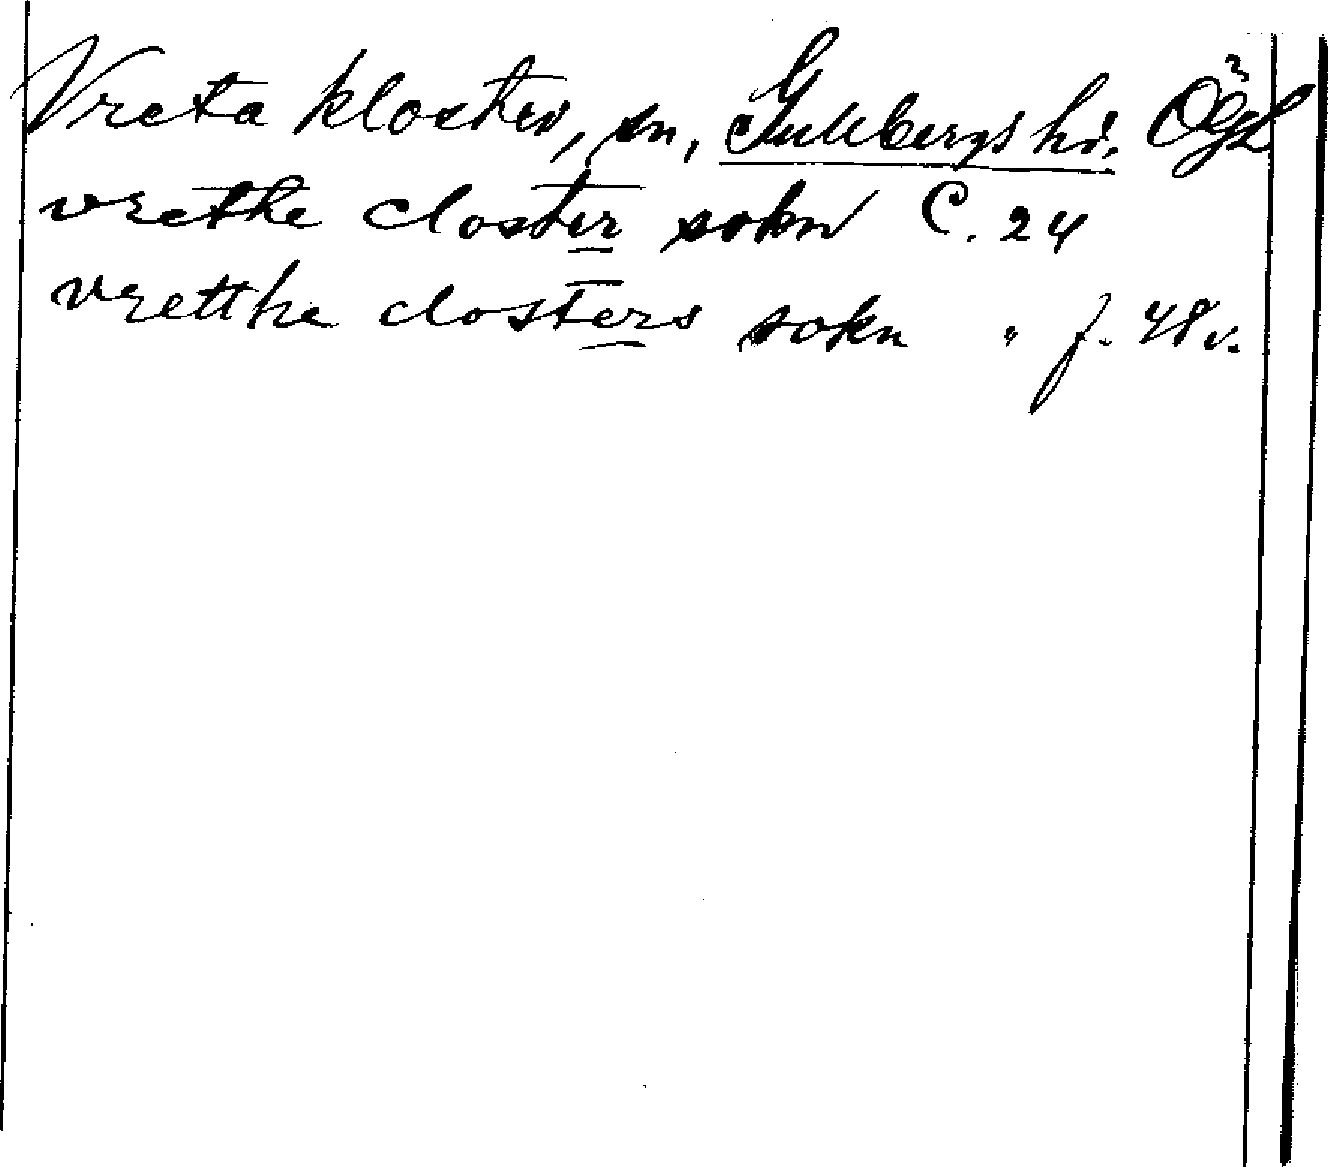 Vreta kloster, sn, Gullbergs hd. Ögl
vrethe closter sokn C. 24
vretthe closters sokn " f. 48 v.